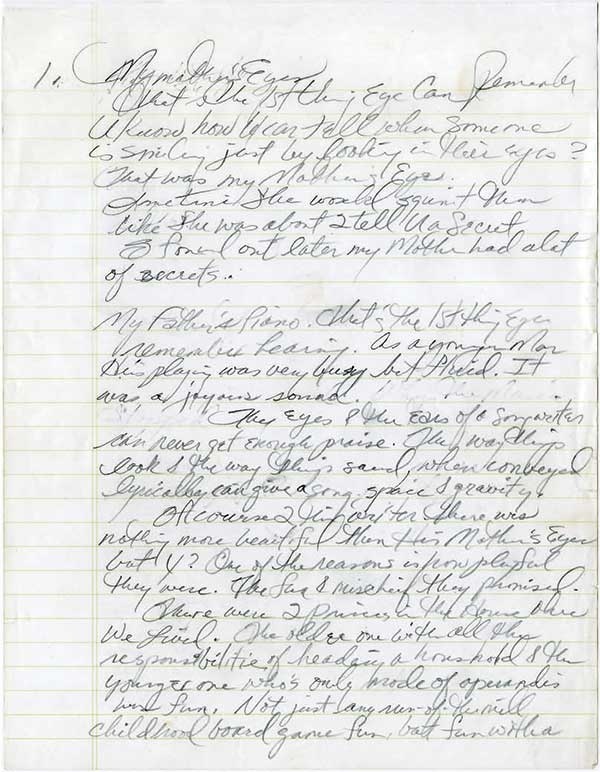 1. My mother's Eyes.
That's the 1st thing Eye Can Remember
U know how U can tell when someone
is smiling just by looking in their eyes?
That was my Mother's Eyes.
Sometimes She would squint them
like She was about 2 tell U a Secret
found out later my Mother had a lot
of secrets.
My Father's Piano. That's the 1st thing Eye
remember hearing. As a younger Man
His playing was very busy but fluid. It
was a joyous sound.
The Eyes & the Ears of a songwriter
can never get enough praise. The way things
look & the way things sound, when conveyed
lyrically can give a song space & gravity.
Of course 2 this writer there was
nothing more beautiful than His Mother's Eyes
but Y? One of the reasons is how playful
they were. The fun & mischief they promised.
There were 2 Princes in the House where
We lived. The older one with all the
responsibilitie of heading a household & the
younger one who's only mode of operandis
was fun. Not just any run-of-the-mill
childhood board game fun, but fun with a